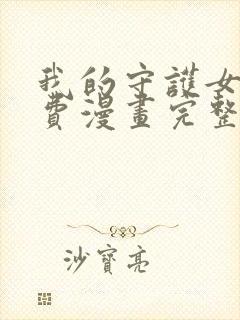 我的守護女
費漫畫完整
沙寶亮